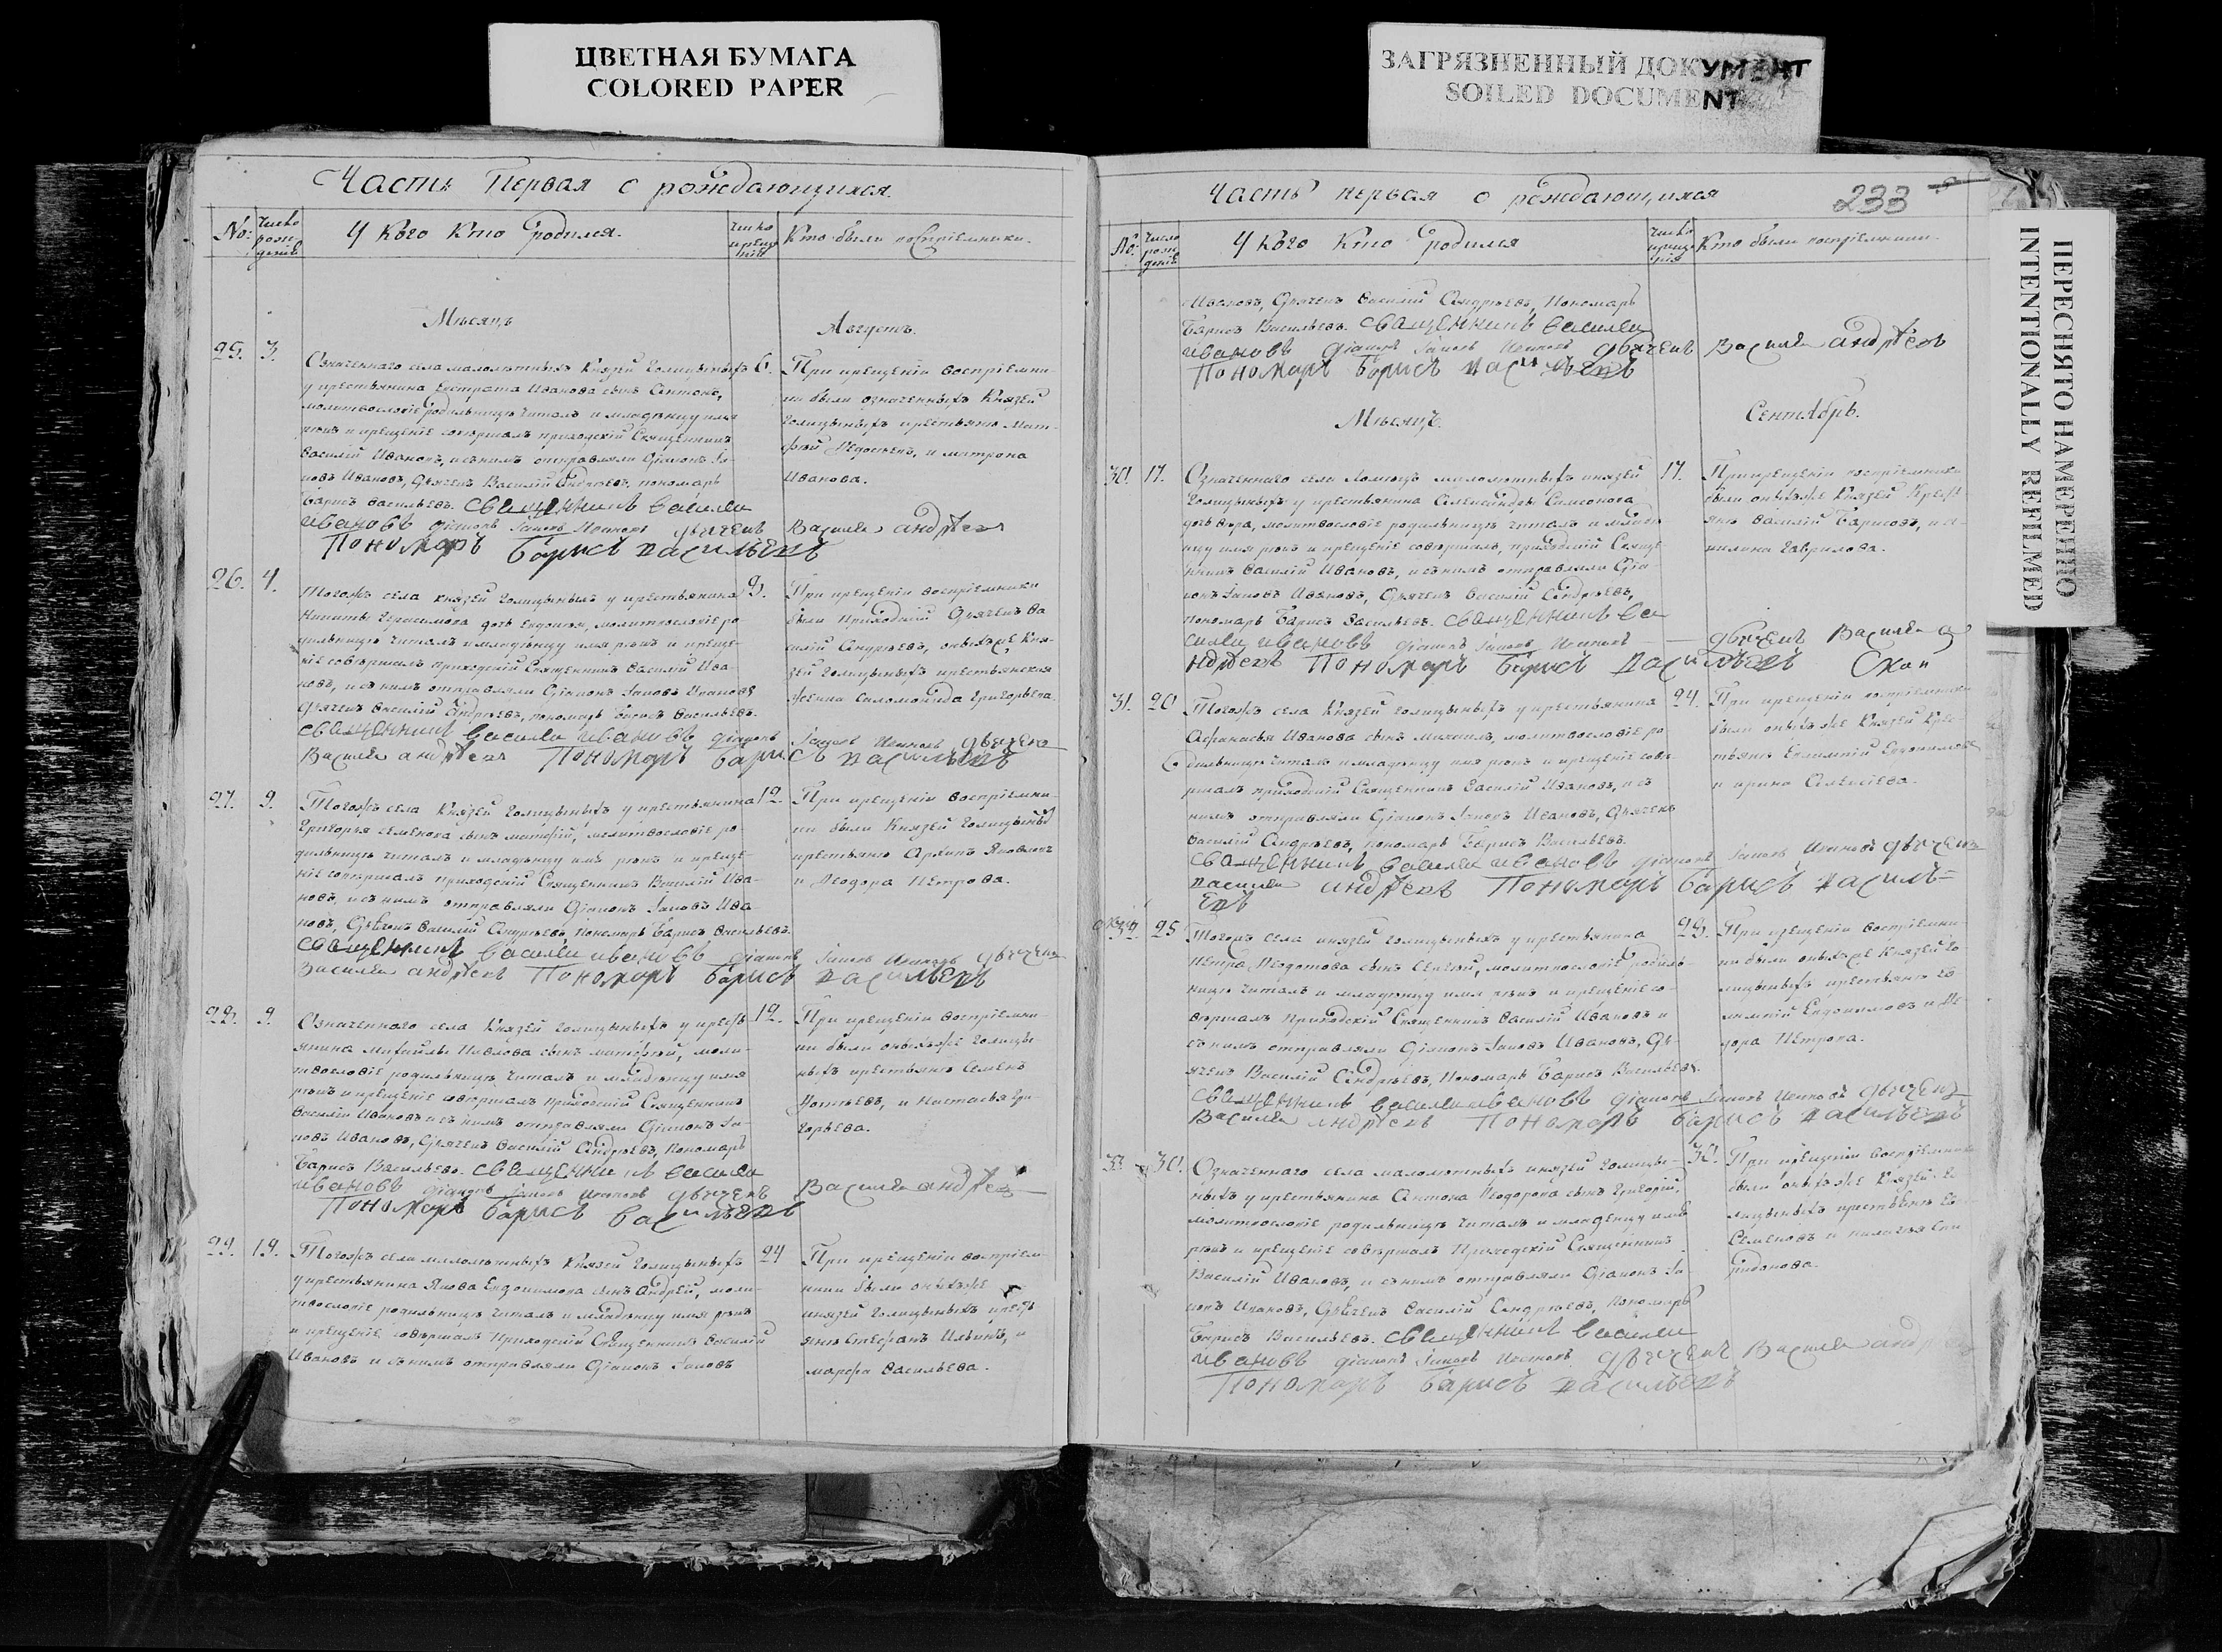 ЦВЕТНАЯ БУМАГА
COLORED PAPER
ЗАГРЯЗНЕННЫЙ ДОКУМЕНТ
SOILED DOCUMENT
ПЕРЕСНЯТО НАМЕРЕННО
INTENTIONALLY REFILMED
Часть Первая о рождающихся.
No: Число рож-денiя У Кого Кто Родился. Число крещенiя Кто были воспрiемники.
Мѣсяцъ Августъ.
25. 3.
Означеннаго села малолѣтныхъ Князей Голицыныхъ
у крестьянина Евстрата Иванова сынъ Антонъ,
молитвословiе родильницѣ читалъ и младенцу имя
рекъ и крещенiе совершалъ приходскiй Священникъ
Василiй Ивановъ, и съ нимъ отправляли Дiаконъ Iа-
ковъ Ивановъ, Дьячекъ Василiй Андреевъ, пономарь
Борисъ Васильевъ. священникъ василей
ивановъ дiаконъ Iаковъ Ивановъ дьячекъ Василей андрѣевъ
Пономарь Борисъ васильевъ
6.
При крещенiи воспрiемни-
ки были означенныхъ Князей
Голицыныхъ крестьяне Мат-
фей Ѳедотьевъ, и матрона
Иванова.
26. 4.
Тогожъ села князей Голицыныхъ у крестьянина
Никиты Герасимова дочь Евдокiя, молитвословiе ро-
дильницѣ читалъ и младенцу имя рекъ и креще-
нiе совершалъ приходскiй Священникъ Василiй Ива-
новъ, и съ нимъ отправляли Дiаконъ Iаковъ Ивановъ
Дьячекъ Василiй Андреевъ, пономарь Борисъ Васильевъ.
священникъ василей ивановъ дiаконъ Iаковъ Ивановъ дьячекъ
Василей андрѣевъ Пономарь Борисъ васильевъ
9.
При крещенiи воспрiемники
были Приходскiй Дьячекъ Ва
силiй Андреевъ, оныхъже Кня-
зей Голицыныхъ крестьянская
Жена Саломонида Григорьева.
27. 9.
Тогожъ села Князей Голицыныхъ у крестьянина
Григорья Семенова сынъ матфiй, молитвословiе ро-
дильницѣ читалъ и младенцу имя рекъ и креще-
нiе совершалъ приходскiй Священникъ Василiй Ива-
новъ, и съ нимъ отправляли Дiаконъ Iаковъ Ива-
новъ, Дьячекъ Василiй Андреевъ Пономарь Борисъ Васильевъ.
священникъ василей ивановъ дiаконъ Iаковъ Ивановъ дьячекъ
Василей андрѣевъ Пономарь Борисъ васильевъ
12.
При крещенiи воспрiемни-
ки были Князей Голицыныхъ
крестьяне Архипъ Яковлевъ
и Ѳеодора Петрова.
28. 9.
Означеннаго села Князей Голицыныхъ у кресть-
янина михайлы Павлова сынъ матфей, моли-
твословiе родильницѣ читалъ и младенцу имя
рекъ и крещенiе совершалъ приходскiй Священникъ
Василiй Ивановъ и съ нимъ отправляли Дiаконъ Iа-
ковъ Ивановъ, Дьячекъ Василiй Андреевъ, Пономарь
Борисъ Васильевъ. священникъ василей
ивановъ дiаконъ Iаковъ Ивановъ дьячекъ Василей андрѣевъ
Пономарь Борисъ васильевъ
12.
При крещенiи воспрiемни-
ки были оныхъже Голицы-
ныхъ крестьяне Семенъ
и Настасья Гри-
горьева.
29. 19.
Тогожъ села малолѣтныхъ Князей Голицыныхъ
у крестьянина Якова Евдокимова сынъ Андрей, моли-
твословiе родильницѣ читалъ и младенцу имя рекъ
и крещенiе совершалъ Приходскiй Священникъ Василiй
Ивановъ и съ нимъ отправляли Дiаконъ Iаковъ
24
При крещенiи воспрiем-
ники были оныхъже
князей Голицыныхъ кресть
яне Стефанъ Ильинъ, и
марфа Васильева.
Часть первая о рождающихся
233
No. Число рож-денiя У Кого Кто Родился Число крещенiя Кто были воспрiемники.
Ивановъ, Дьячекъ Василiй Андреевъ, Пономарь
Борисъ Васильевъ. священникъ василей
ивановъ дiаконъ Iаковъ Ивановъ дьячекъ Василей андрѣевъ
Пономарь Борисъ васильевъ
Мѣсяцъ Сентябрь.
30. 17.
Означеннаго села малолѣтныхъ князей
Голицыныхъ у крестьянина Александры Самсонова
дочь Вѣра, молитвословiе родильницѣ читалъ и младе
нцу имя рекъ и крещенiе совершалъ, приходскiй Свяще-
нникъ Василiй Ивановъ, и съ нимъ отправляли Дiа-
конъ Iаковъ Ивановъ, Дьячекъ Василiй Андреевъ,
пономарь Борисъ Васильевъ. священникъ ва
силей ивановъ дiаконъ Iаковъ Ивановъ дьячекъ Василей а
ндрѣевъ Пономарь Борисъ васильевъ
17.
При крещенiи воспрiемники
были оныхъже Князей Кресть
яне Василiй Борисовъ, и а-
килина Гаврилова.
31. 20
Тогожъ села Князей Голицыныхъ у крестьянина
Афанасья Иванова сынъ михаилъ, молитвословiе ро
дильницѣ читалъ и младенцу имя рекъ и крещенiе сове
ршалъ приходскiй Священникъ Василiй Ивановъ, и съ
нимъ отправляли Дiаконъ Iаковъ Ивановъ, Дьячекъ
Василiй Андреевъ, пономарь Борисъ Васильевъ.
священникъ василей ивановъ дiаконъ Iаковъ Ивановъ дьячекъ
василей андрѣевъ Пономарь Борисъ василь=
евъ
24.
При крещенiи воспрiемники
были оныхъже Князей Крес-
тьяне Евдокимовъ
и ирина Алексѣева.
32 25
Тогожъ села князей Голицыныхъ у крестьянина
Петра Ѳедотова сынъ Сергѣй, молитвословiе родиль-
ницѣ читалъ и младенцу имя рекъ и крещенiе со-
вершалъ Приходскiй Священникъ Василiй Ивановъ и
съ нимъ отправляли Дiаконъ Iаковъ Ивановъ, Дь-
ячекъ Василiй Андреевъ, Пономарь Борисъ Васильевъ.
священникъ василей ивановъ дiаконъ Iаковъ Ивановъ дьячекъ
Василей андрѣевъ Пономарь Борисъ васильевъ
При крещенiи воспрiемни-
ки были оныхъже Князей Го
лицыныхъ крестьяне
Евдокимовъ и Ѳе-
дора Петрова.
33 30.
Означеннаго села малолѣтныхъ князей Голицы-
ныхъ у крестьянина Антона Ѳеодорова сынъ Григорiй,
молитвословiе родильницѣ читалъ и младенцу имя
рекъ и крещенiе совершалъ Приходскiй Священникъ
Василiй Ивановъ, и съ нимъ отправляли Дiаконъ Iа-
ковъ Ивановъ, Дьячекъ Василiй Андреевъ, Пономарь
Борисъ Васильевъ. священникъ василей
ивановъ дiаконъ Iаковъ Ивановъ дьячекъ Василей андр
Пономарь Борисъ васильевъ
30.
При крещенiи воспрiемники
были оныхъже Князей Го
лицыныхъ крестьяне
Семеновъ и пелагея Спи
ридонова.